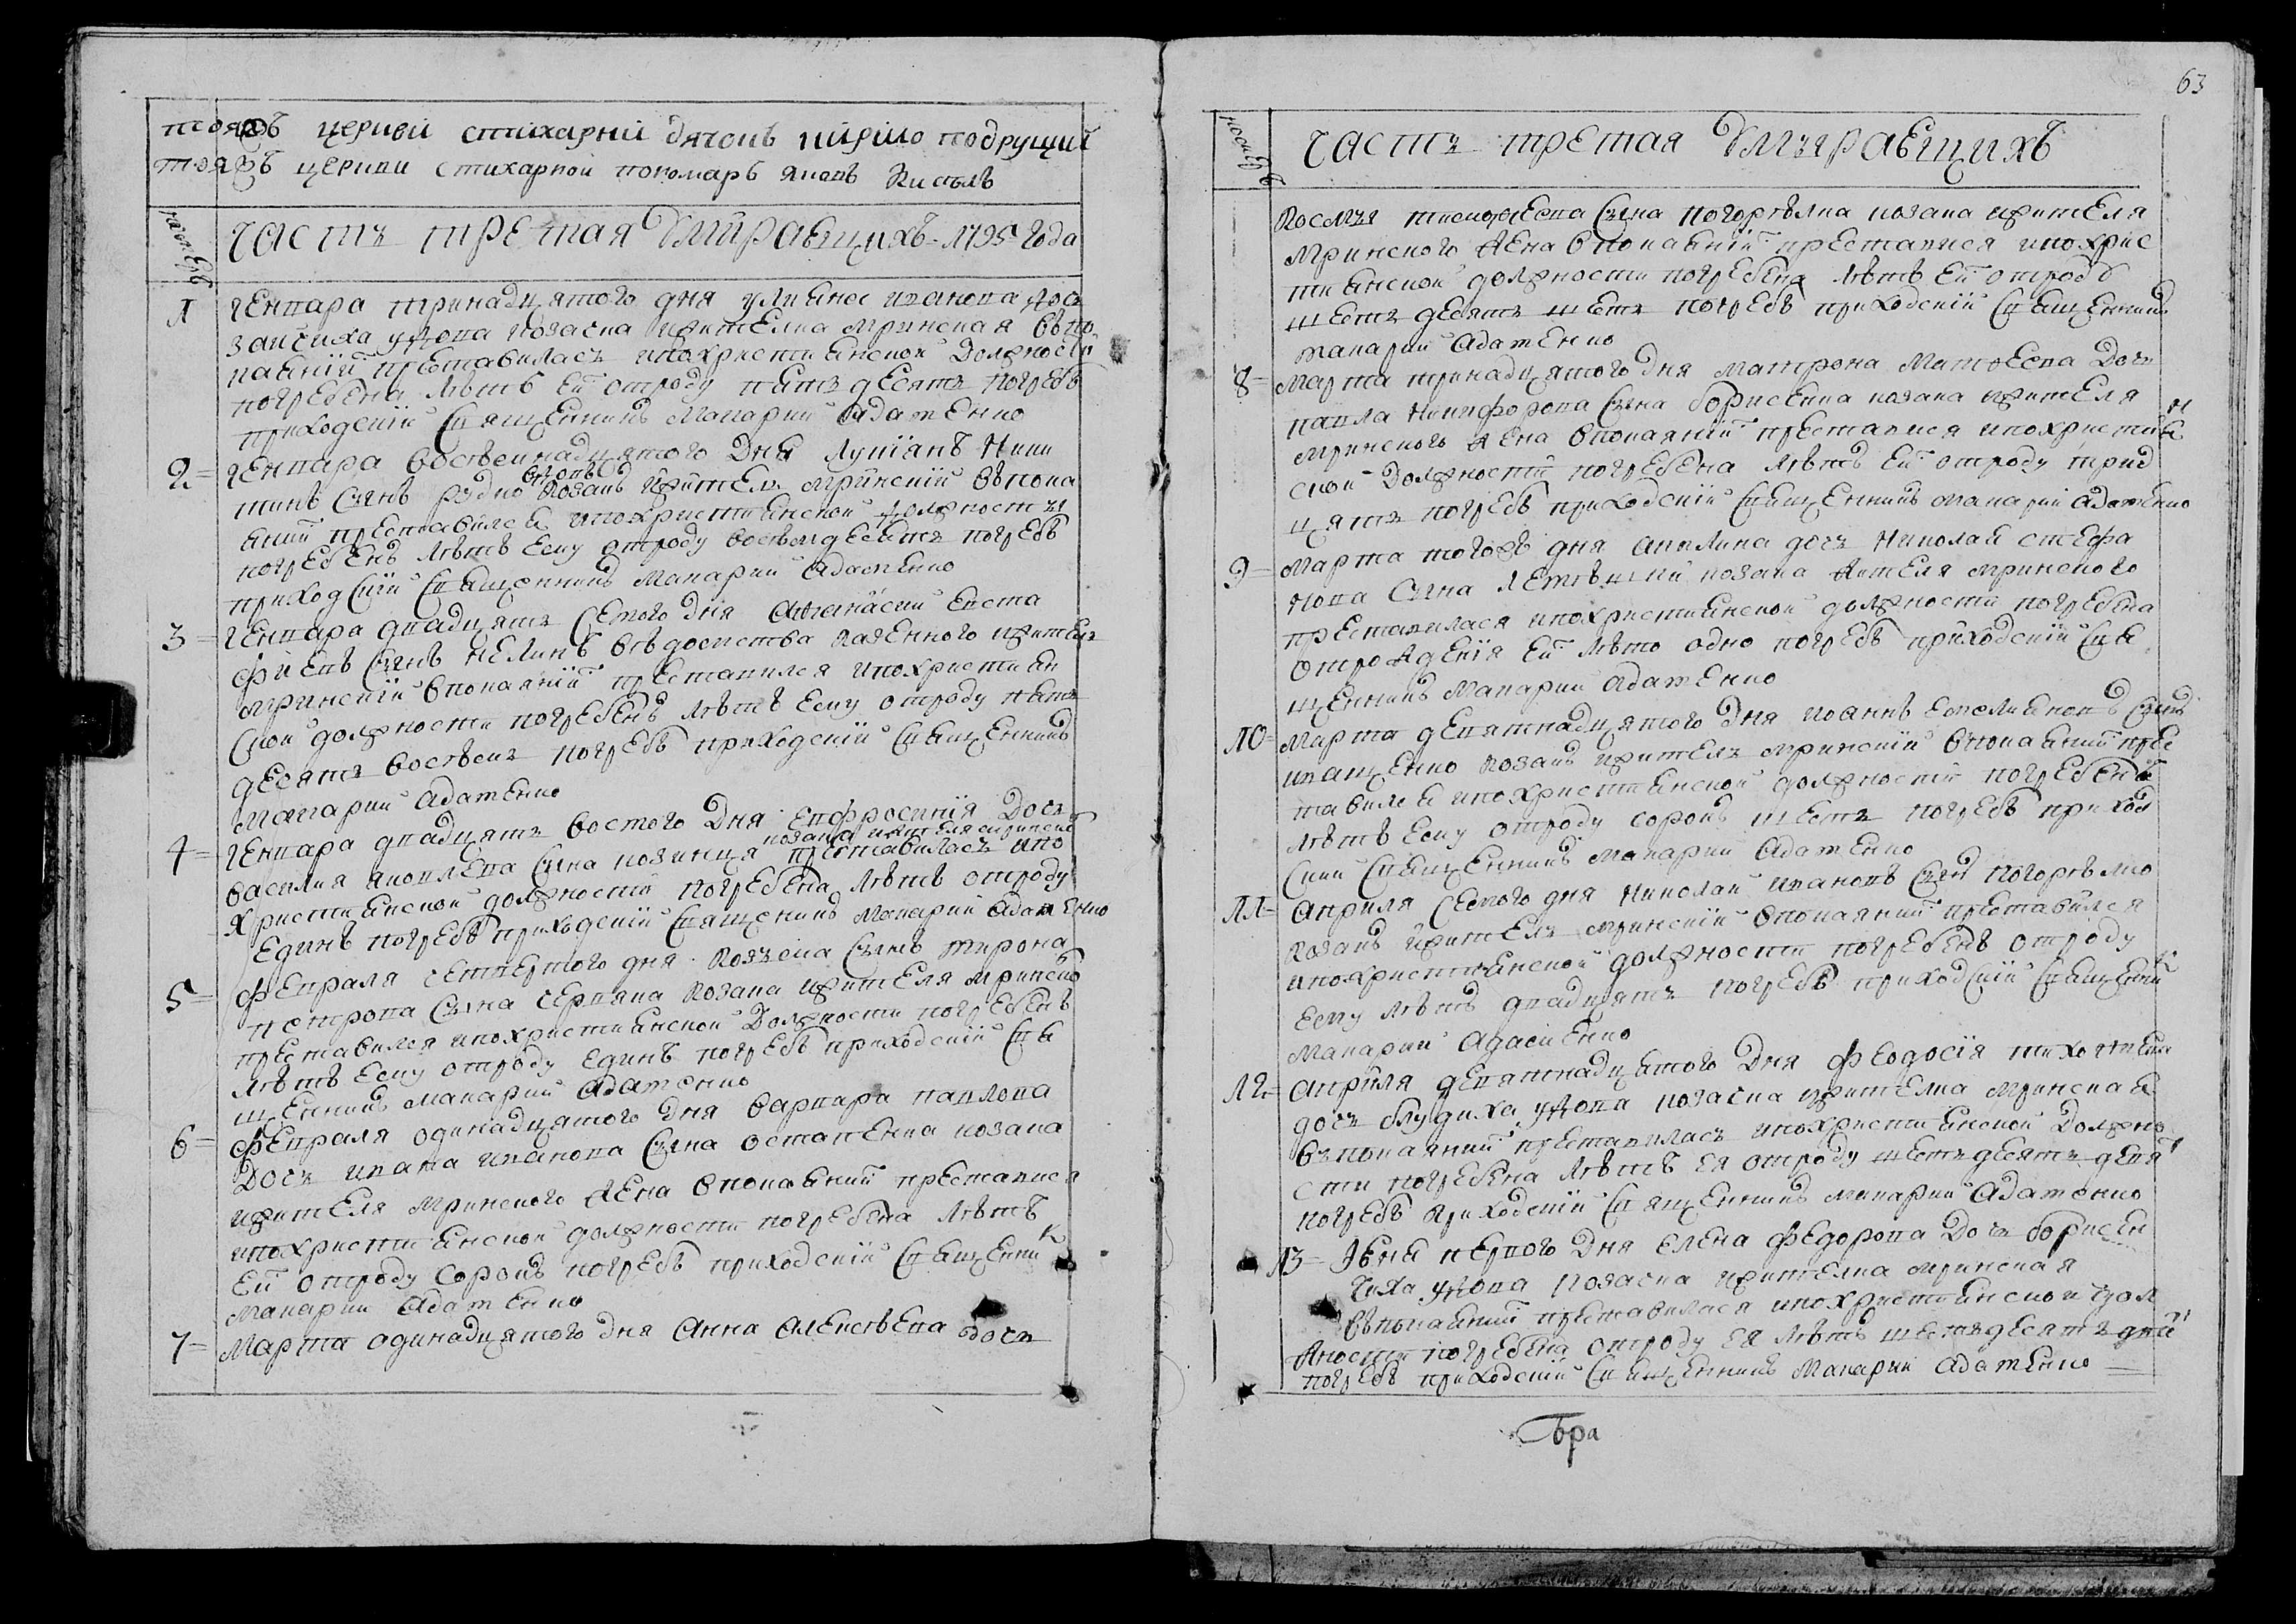 тояжъ церкви стихарній дячокъ кирило подруцкій
тояжъ церкви стихарной пономарь яковъ Кисѣль
Часть третая Умирающихъ 1795 года
1 Генвара тринадцятого дня улияна иванова дочь
зайчиха удова козачка жителка мринская въ по
каяніи преставилась и похристиянской должности
погребена лѣтъ ей отроду пятьдесятъ погребъ
приходскій священникъ Макарий Адаменко
2 Генвара восѣмнадцятого дня Лукіянъ Ники
тинъ сынъ рудко козакъ жителъ мринскій въ пока
яний преставился и похристиянской должносты
погребенъ лѣтъ ему отроду восѣмдесятъ погребъ
приходский священникъ Макарий Адаменко
3 Генвара двадцять семого дня Афанасий Евста
фиевъ сынъ вѣдомства казенного жителъ
мринскій в покаяніи преставился и похристиян
ской должности погребенъ лѣтъ ему отроду пять
десятъ восѣмъ погребъ приходскій священникъ
Макарий Адаменко
4 Генвара двадцять востого дня Евфросинія дочь
козака жителя мринско
василия яковлева сына козинця преставилась и по
християнской должности погребена лѣтъ отроду
единъ погребъ приходскій священикъ Макарий Адаменко
5 Февраля четвертого дня Козъма сынъ мирона
петрова сына червяка козака жителя мринско
преставился и похристиянской должности погребенъ
лѣтъ ему отроду единъ погребъ приходскій свя
щенникъ Макарий Адаменко
6 Февраля одинадцятого дня варвара павлова
дочь ивана иванова сына остапенка козака
жителя мринского жена в покаяний преставися
и похристиянской должности погребена лѣтъ
ей отроду сорокъ погребъ приходскій священник
Макарий Адаменко
7 Марта одинадцятого дня Анна Алексѣева дочь
63
Часть третая Умирающихъ
Космы тимофеева сына погорѣлка козака жителя
мринского жена в покаяніи преставися и похрис
тиянской должности погребена лѣтъ ей отроду
шестьдесятъ шесть погребъ приходскій священникъ
Макарий Адаменко
8 Марта тринадцятого дня матрона Матвеева дочь
павла Никифорова сына борисенка козака жителя
мринского жена в покаяній преставися и похристиян
ской должности погребена лѣтъ ей отроду трид
цять погребъ приходскій священникъ Макарий Адаменко
9 Марта тогожъ дня Акилина дочь Николая стефа
нова сына козака жителя мринского
преставилася и похристиянской должности погребена
отрождения ей лѣто одно погребъ приходскій свя
щенникъ Макарий Адаменко
10 Марта девятнадцятого дня иоаннъ сынъ
иващенко козакъ жителъ мринскій в покаяний прес
тавился и похристиянской должности погребенъ
лѣтъ ему отроду сорокъ шесть погребъ приход
ский священникъ Макарий Адаменко
11 Априля семого дня Николай ивановъ сынъ погорѣлко
козакъ жителъ мринскій в покаяний преставился
и похристиянской должности погребенъ отроду
ему лѣтъ двадцять погребъ приходский священник
Макарий Адаменко
12 Априля девятнадцятого дня Феодосія
дочь блудиха удова козачка жителка мринская
въ покаяний преставилась и похристиянской должно
сти погребена лѣтъ ея отроду шестьдесятъ девя
погребъ приходскій священникъ Макарий Адаменко
13 Іюня первого дня Елена Федорова дочь борисен
чиха удова козачка жителка мринская
въ покаяний преставилася и похристиянской дол
жности погребена отроду ея лѣтъ шестьдесятъ два
погребъ приходскій священникъ Макарий Адаменко
Бра